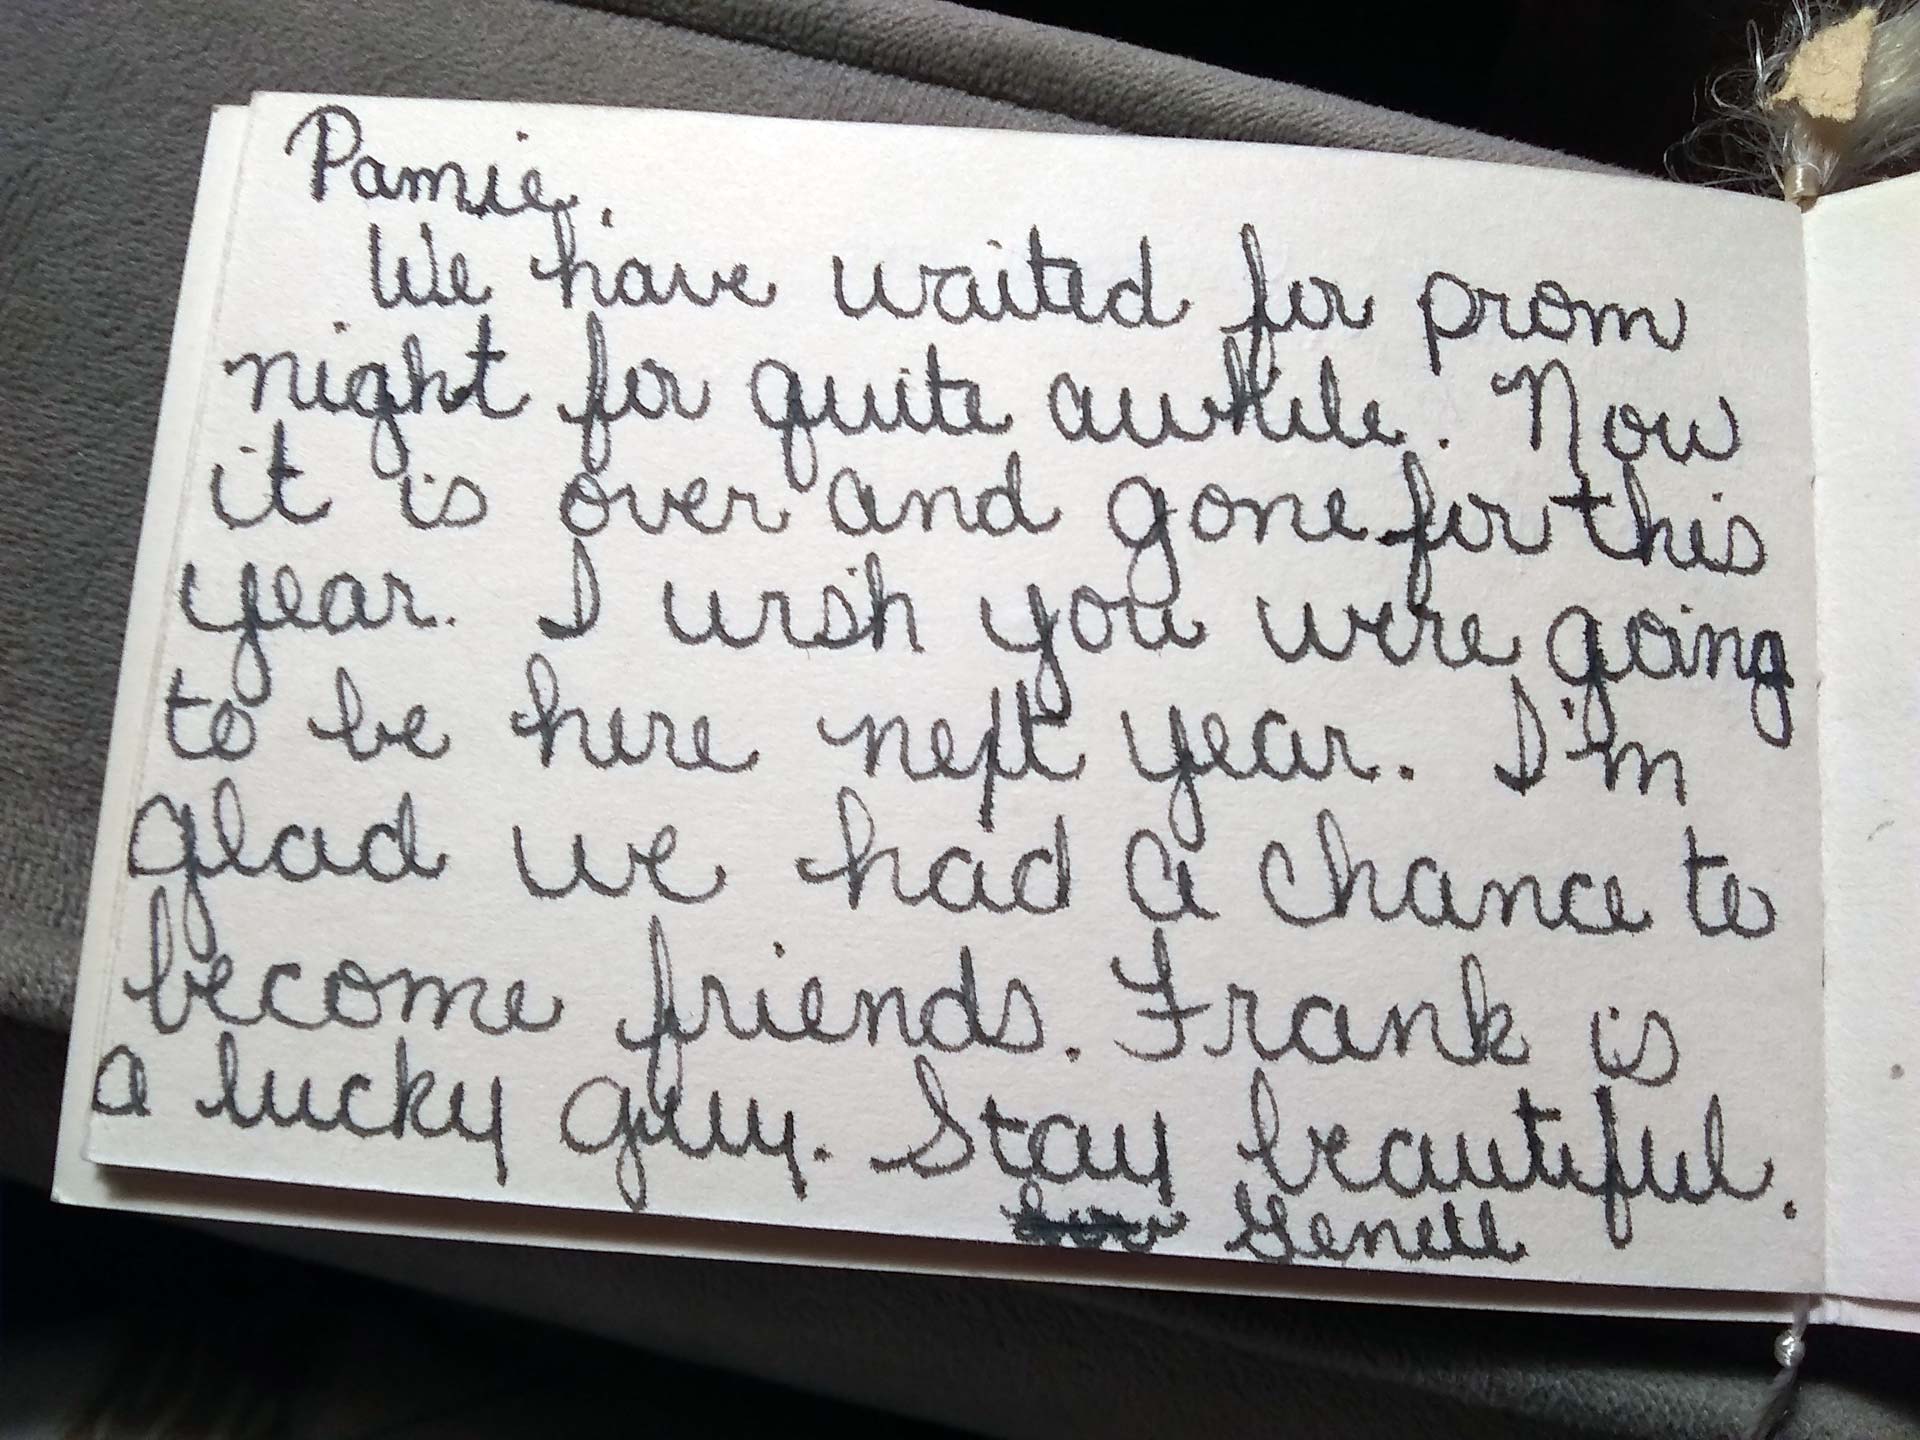 Pamie.
We have waited for prom
night for quite awhile. Now
it is over and gone for this
year. I wish you were going
to be here next year. I'm
glad we had a chance to
become friends. Frank is
a lucky guy. Stay beautiful.
Genell